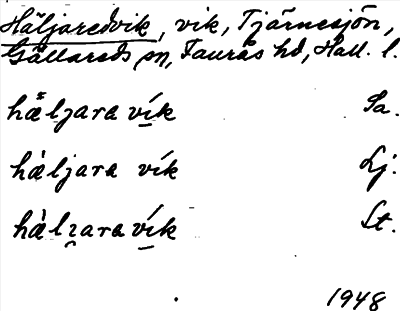 Häljaredvik, vik, Tjärnesjön,
Gällareds sn, Faurås hd, Hall. l.
hæ̀ljara vík Sa.
hàljara vík Lj.
hàlɀara vík St.
1948